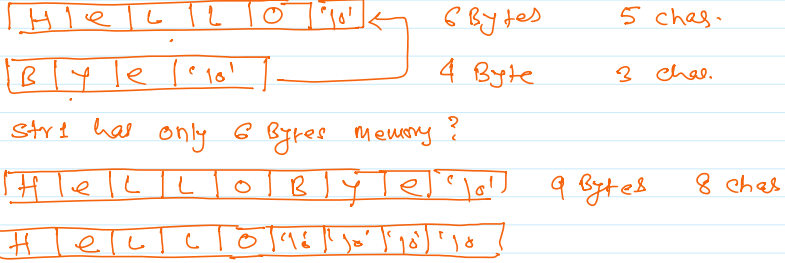 H e L L O '\0' 6 Bytes 5 chas.
B y e '\0' 4 Byte 3 chas.
Str1 has only 6 Bytes memory?
H e L L O B y e '\0' 9 Bytes 8 chas
H e L L O '\0' '\0' '\0' '\0